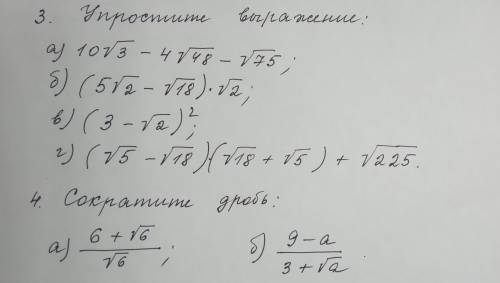 3. Упростите выражение:
а) 10√3 − 4√48 − √75;
б) (5√2 − √18)·√2;
в) (3 − √2)²;
г) (√5 − √18)(√18 + √5) + √225.
4. Сократите дробь:
а) (6 + √6)/√6; б) (9 − a)/(3 + √a).